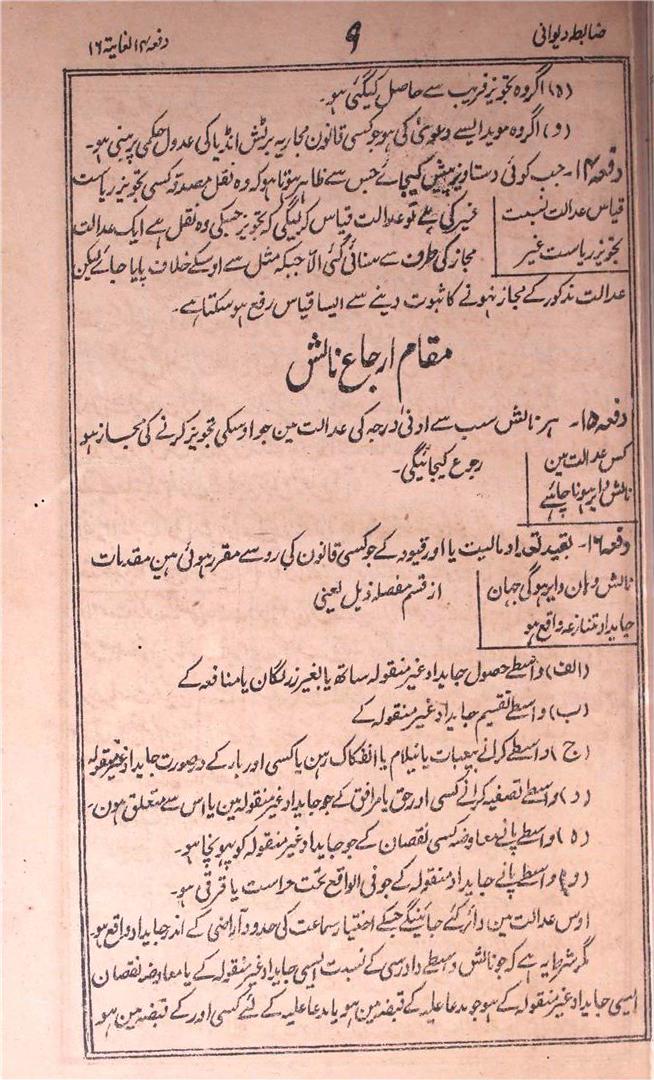 ضابطہ دیوانی
۹
دفعہ ۱۴ لغایتہ ۱۶
(ہ) اگر وہ تجویز فریب سے حاصل کیگئی ہو۔
(و) اگر وہ موید ایسے دعویٰ کی ہو جو کسی قانون مجاریہ برٹش انڈیا کی عدول حکمی پر مبنی ہو۔
دفعہ ۱۴۔ جب کوئی دستاویز پیش کیجائے جس سے ظاہر ہوتا ہو کہ وہ نقل مصدقہ کسی تجویز ریاست
قیاس عدالت نسبت
تجویز ریاست غیر
غیر کی ہے تو عدالت قیاس کریگی کہ تجویز جسکی وہ نقل ہے ایک عدالت
مجاز کی طرف سے سنائی گئی الّا جبکہ مثل سے اوسکے خلاف پایا جائے لیکن
عدالت مذکور کے مجاز نہونے کا ثبوت دینے سے ایسا قیاس رفع ہو سکتا ہے۔
مقام ارجاع نالش
دفعہ ۱۵۔ ہر نالش سب سے ادنیٰ درجہ کی عدالت مین جو اوسکی تجویز کرنے کی مجاز ہو
کس عدالت مین
نالش دایر ہونا چاہئیے
رجوع کیجائیگی۔
دفعہ ۱۶۔ بقید تعداد مالیت یا اور قیود کے جو کسی قانون کی رو سے مقرر ہوئی ہین مقدمات
نالش وہان دایر ہوگی جہان
جایداد متنازعہ واقع ہو
از قسم مفصلہ ذیل یعنی
(الف) واسطے حصول جایداد غیر منقولہ ساتھ یا بغیر زر لگان یا منافعہ کے
(ب) واسطے تقسیم جایداد غیر منقولہ کے
(ج) واسطے کرانے بیعبات یا نیلام یا انفکاک رہن یا کسی اور بار کے درصورت جایداد غیر منقولہ
(د) واسطے تصفیہ کرانے کسی اور حق یا مرافق کے جو جایداد غیر منقولہ مین یا اس سے متعلق ہون۔
(ہ) واسطے پانے معاوضہ کسی نقصان کے جو جایداد غیر منقولہ کو پہونچا ہو۔
(و) واسطے پانے جایداد منقولہ کے جو فی الواقع تحت حراست یا قرقی ہو۔
اوس عدالت مین دائر کئے جائینگے جسکے اختیار سماعت کی حدود آراضی کے اندر جایداد واقع ہو۔
مگر شرط یہ ہے کہ جو نالش واسطے دادرسی کے نسبت ایسی جایداد غیر منقولہ کے یا معاوضہ نقصان
ایسی جایداد غیر منقولہ کے ہو جو مدعا علیہ کے قبضہ مین ہو یا مدعا علیہ کے لئے کسی اور کے قبضہ مین ہو